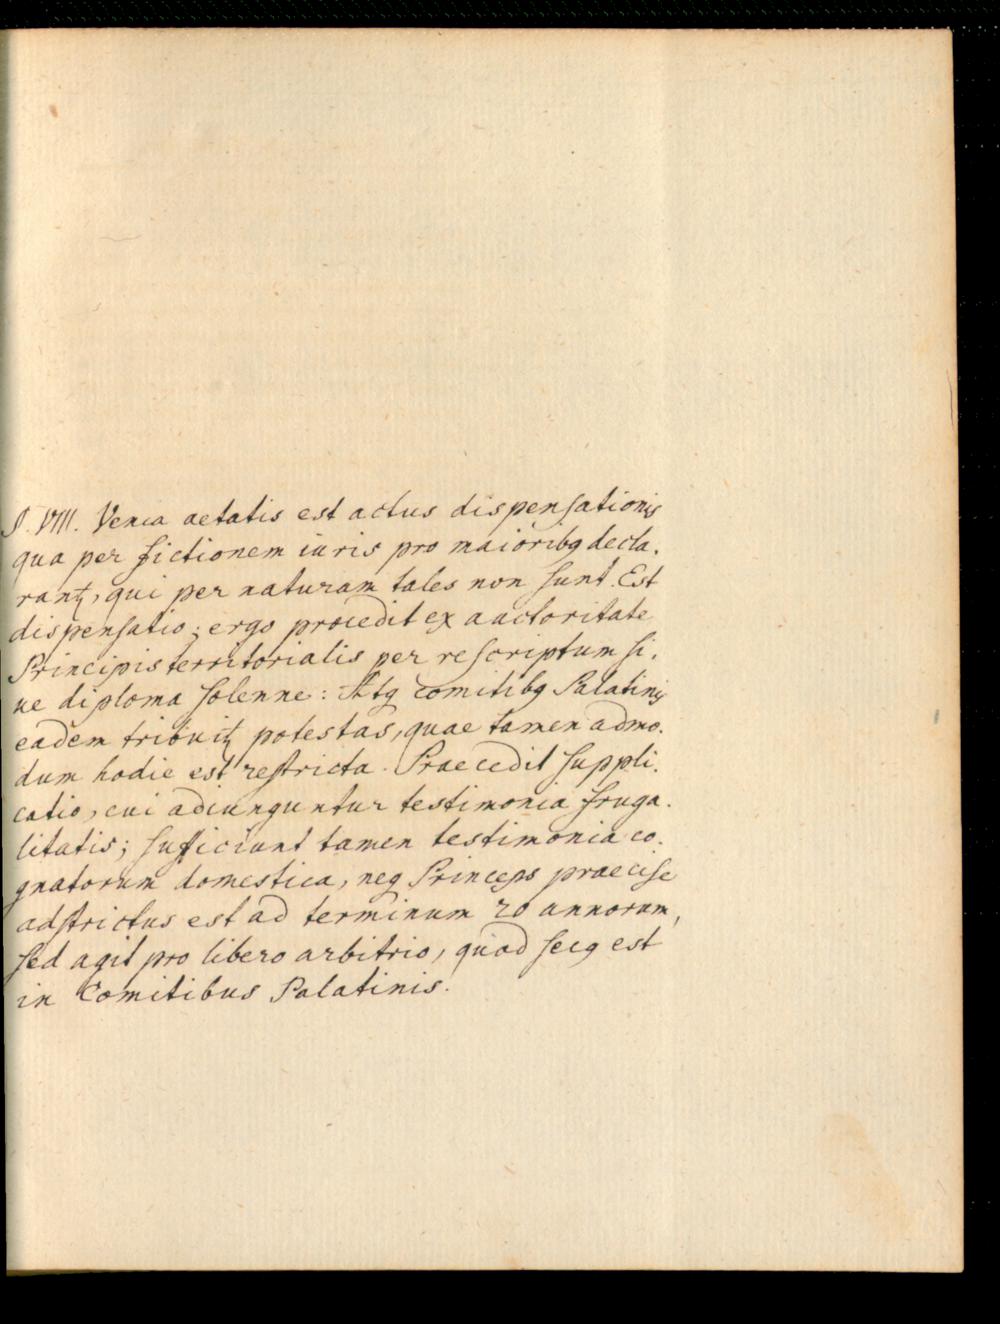 §. VIII. Venia aetatis est actus dispensationis
qua per fictionem iuris pro maioribq decla.
rantʒ, qui per naturam tales non sunt. Est
dispensatio; ergo procedit ex auctoritate
Principis territorialis per rescriptum si.
ue diploma solenne: Atq Comitibq Palatinis
eadem tribuitʒ potestas, quae tamen admo.
dum hodie est restricta. Praecedit suppli.
catio, cui adiunguntur testimonia fruga.
litatis; sufficiunt tamen testimonia co.
gnatorum domestica, neq Princeps praecise
adstrictus est ad terminum 20 annorum,
sed agit pro libero arbitrio, quod secq est
in Comitibus Palatinis.